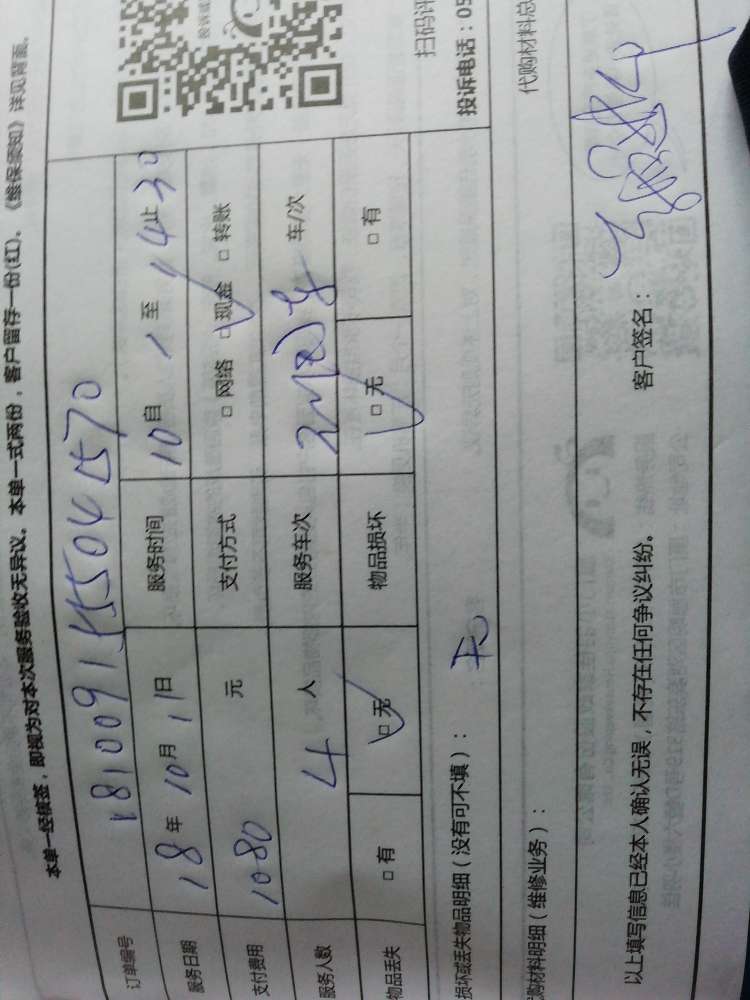 本单一经核签，即视为对本次服务验收无异议。本单一式两份，客户留存一份(红)。《维保须知》详见背面。
订单编号 181009155504570
服务日期 18年10月11日 服务时间 10自 至14止30
支付费用 1080 元 支付方式 □网络 □现金 □转账
服务人数 4 人 服务车次 车/次
物品丢失 □有 □无 物品损坏 □无 □有
扫码评
投诉电话：05
损坏或丢失物品明细（没有可不填）： 无
代购材料总
购材料明细（维修业务）：
以上填写信息已经本人确认无误，不存在任何争议纠纷。 客户签名：